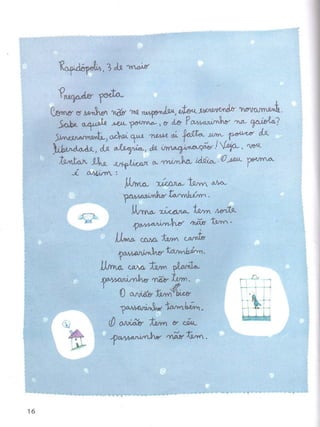 Rapidópolis, 3 de maio
Prezado poeta
Como o senhor não me respondeu, estou escrevendo novamente.
Sabe aquele seu poema, o do Passarinho na gaiola?
Sinceramente, achei que nesse aí falta um pouco de
liberdade, de alegria, de imaginação! Veja, vou
tentar lhe explicar a minha idéia. O seu poema
é assim:
Uma xícara tem asa
passarinho também.
Uma xícara tem sorte
passarinho não tem.
Uma casa tem canto
passarinho também.
Uma casa tem planta
passarinho não tem.
O avião tem bico
passarinho também.
O avião tem o céu
passarinho não tem.
16